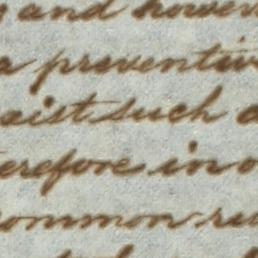 and howev
a preventiv
aist such a
erefore in o
common re